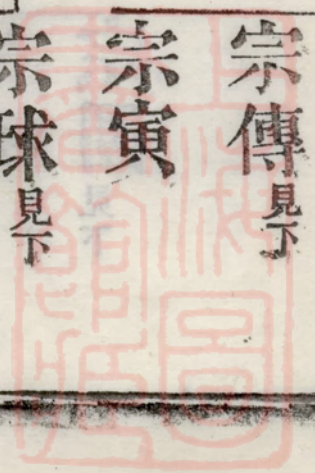 宗傳見下
宗寅
宗球見下